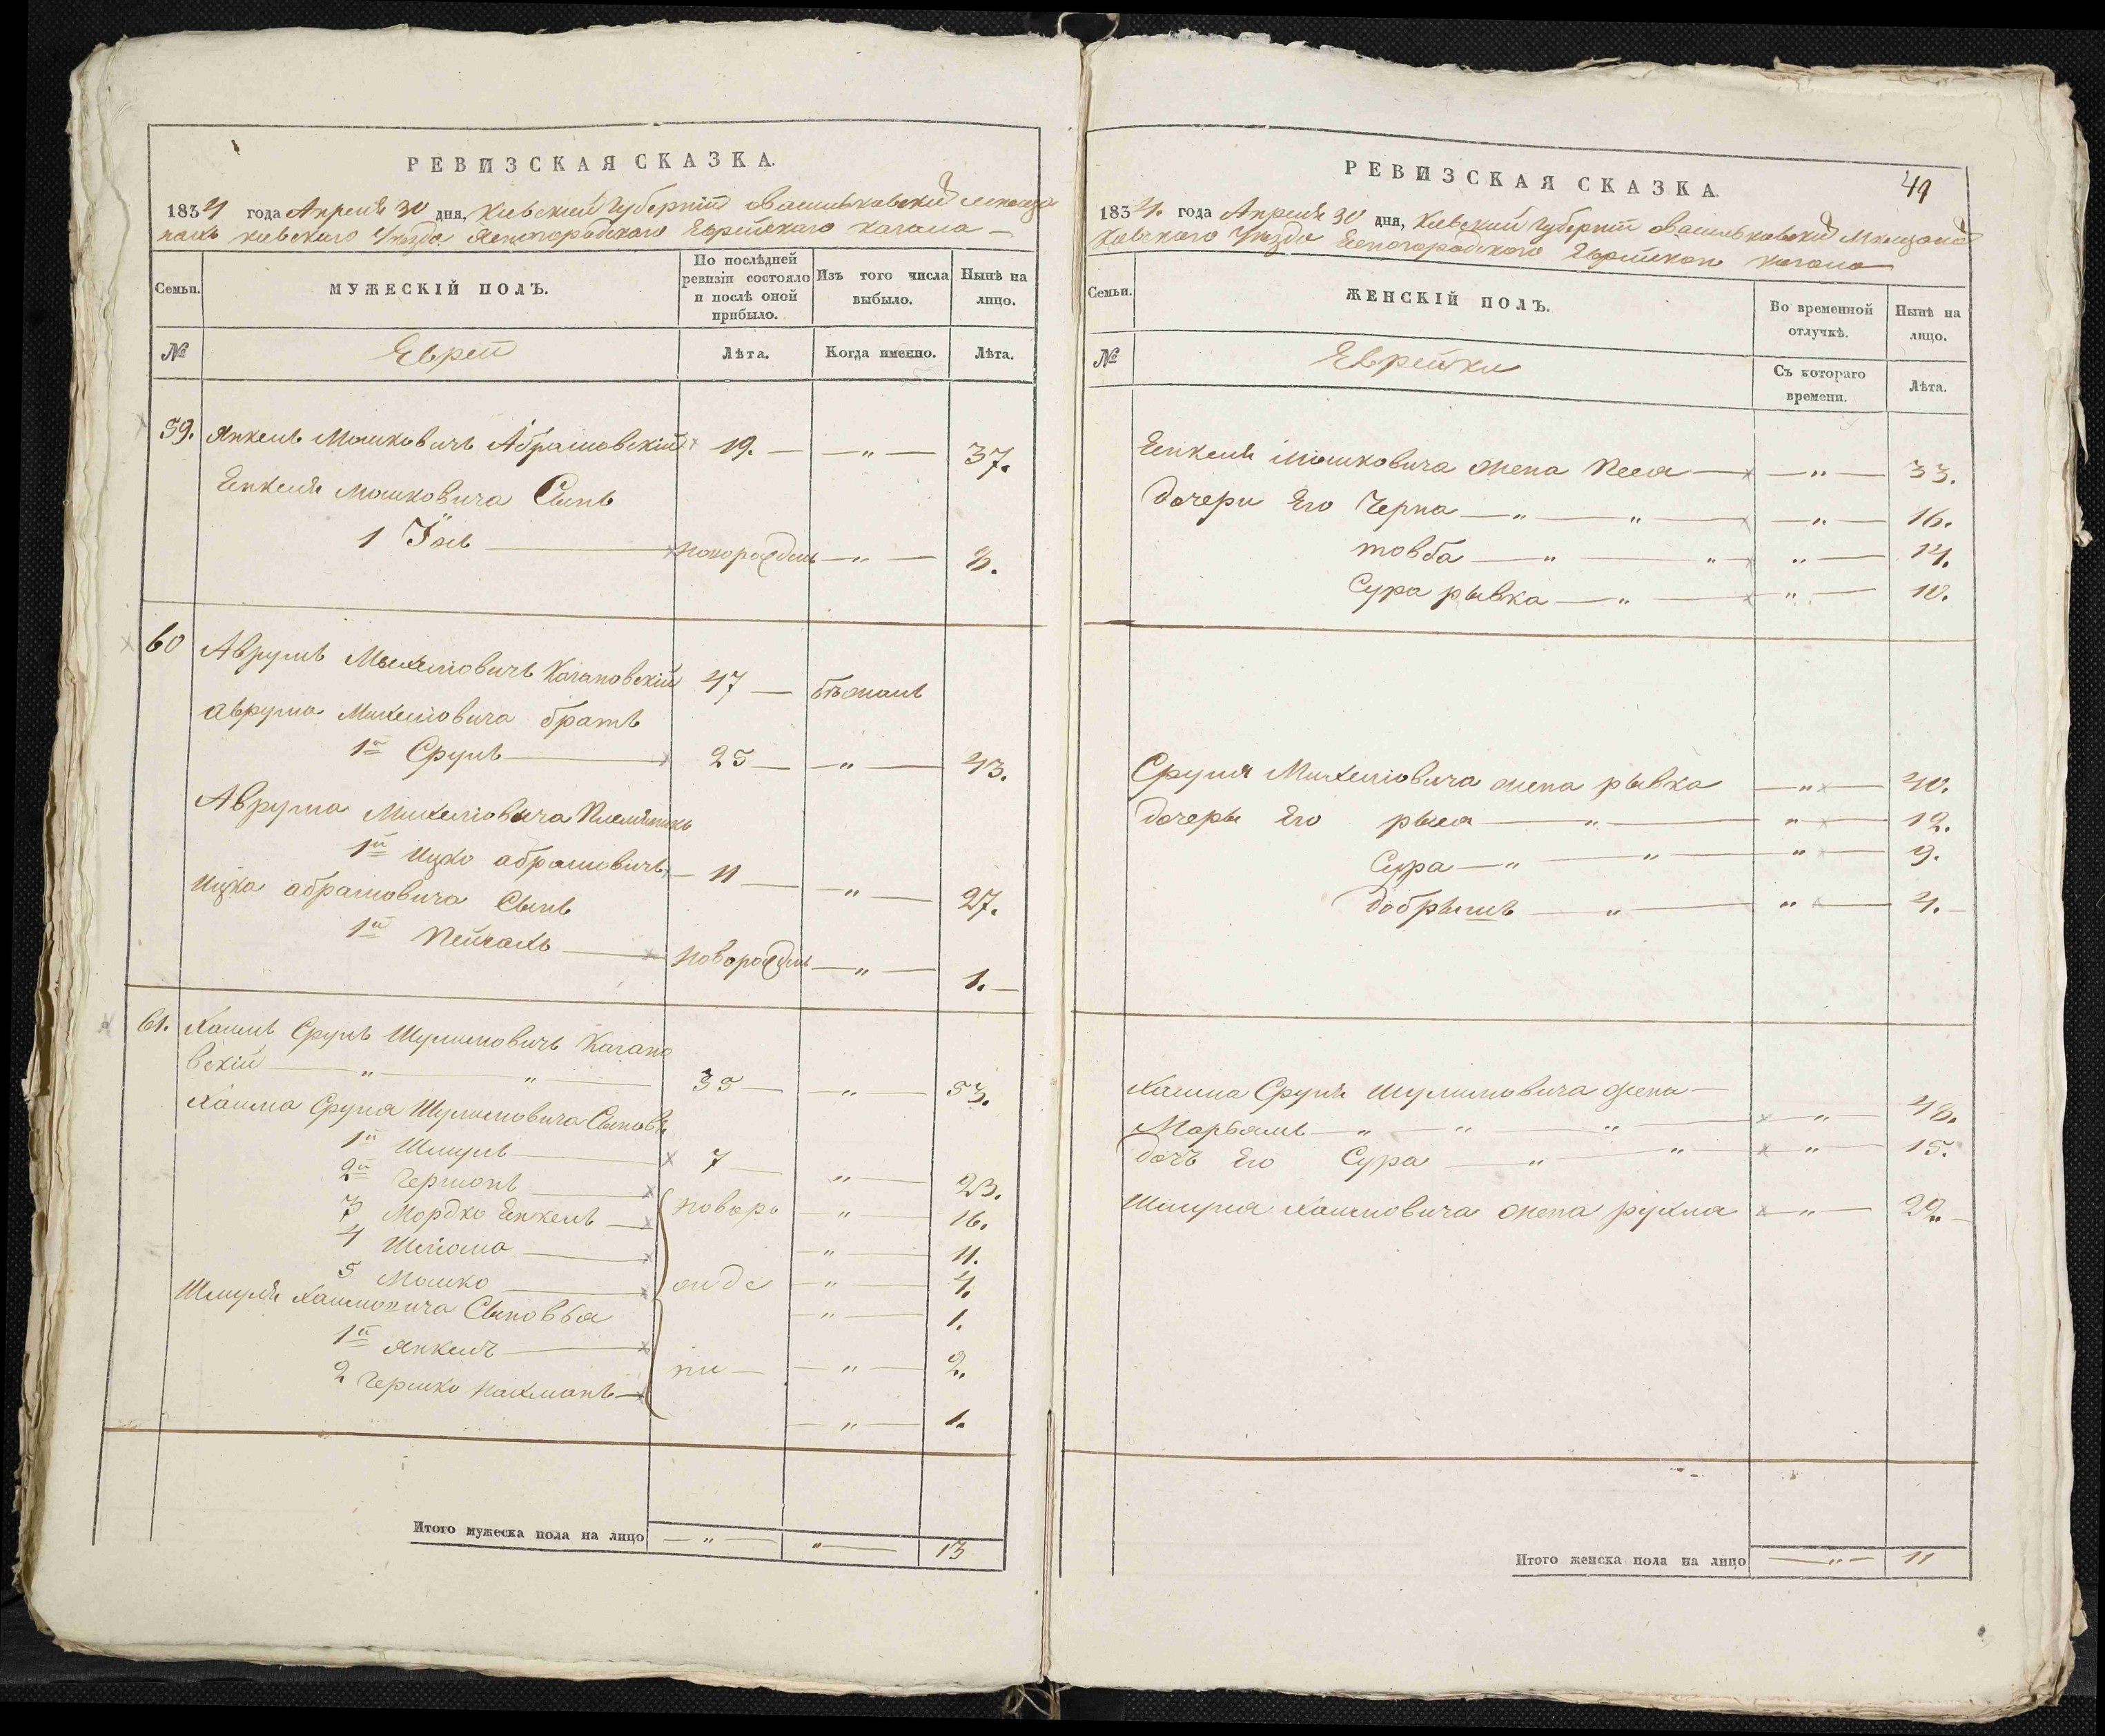 РЕВИЗСКАЯ СКАЗКА.
1834 года Апреля 30 дня, Киевской Губернии
Киевского Уезда Ясногородского Еврейского Кагала —
Семьи.
МУЖЕСКІЙ ПОЛЪ.
По послѣдней ревизіи состояло и послѣ оной прибыло.
Изъ того числа выбыло.
Нынѣ на лицо.
№
Евреи
Лѣта.
Когда именно.
Лѣта.
59. Янкель Мошковичъ Абрамовскій 19. — — „ — 37.
Енкеля Мошковича Сынъ
1 Іось — новорожден — „ — 8.
60 Аврумъ Михелiовичъ Кагановскій 47 — бѣжалъ
Аврума Михелiовича братъ
1й Сруль — 25 — — „ — 43.
Аврума Михелiовича Племянникъ
1й Ицко абрамовичъ — 11 — — „ — 27.
Ицка абрамовича Сынъ
1й Пейсахъ — новорожден — „ — 1. —
61. Хаимъ Сруль Шулимовичъ Кагано
вскій — „ — „ — 35 — — „ — 53.
Хаима Сруля Шулимовича Сыновья
1й Шмуль — 7 — „ — 23.
2й Гершонъ — новоро — „ — 16.
3 Мордко Енкель — „ — 11.
4 Шлiома — жде — „ — 4.
5 Мошко — „ — 1.
Шмуля Хаимовича Сыновья
1й Янкель — ни — — „ — 2.
2 Гершко Нахманъ — — „ — 1.
Итого мужеска пола на лицо — „ — „ — 13
49
РЕВИЗСКАЯ СКАЗКА.
1834. года Апреля 30 дня, Киевской Губернии
Киевского Уезда Ясногородского Еврейского Кагала —
Семьи.
ЖЕНСКІЙ ПОЛЪ.
Во временной отлучкѣ.
Нынѣ на лицо.
№
Еврейки
Съ котораго времени.
Лѣта.
Енкеля Мошковича жена Песя — — „ — 33.
Дочери Его Черна — „ — „ — — „ — 16.
товба — „ — „ — „ — 14.
Сура рывка — „ — „ — 10.
Сруля Михелiовича жена рывка — „ — 40.
Дочеры Его рыся — „ — „ — 12.
Сура — „ — „ — „ — 9.
Добрышъ — „ — „ — 4. —
Хаима Сруля Шулимовича жена —
Марьямъ — „ — „ — „ — — „ — 48.
Дочъ Его Сура — „ — „ — „ — 15.
Шмуля Хаимовича жена рухля — „ — 22. —
Итого женска пола на лицо — „ — 11